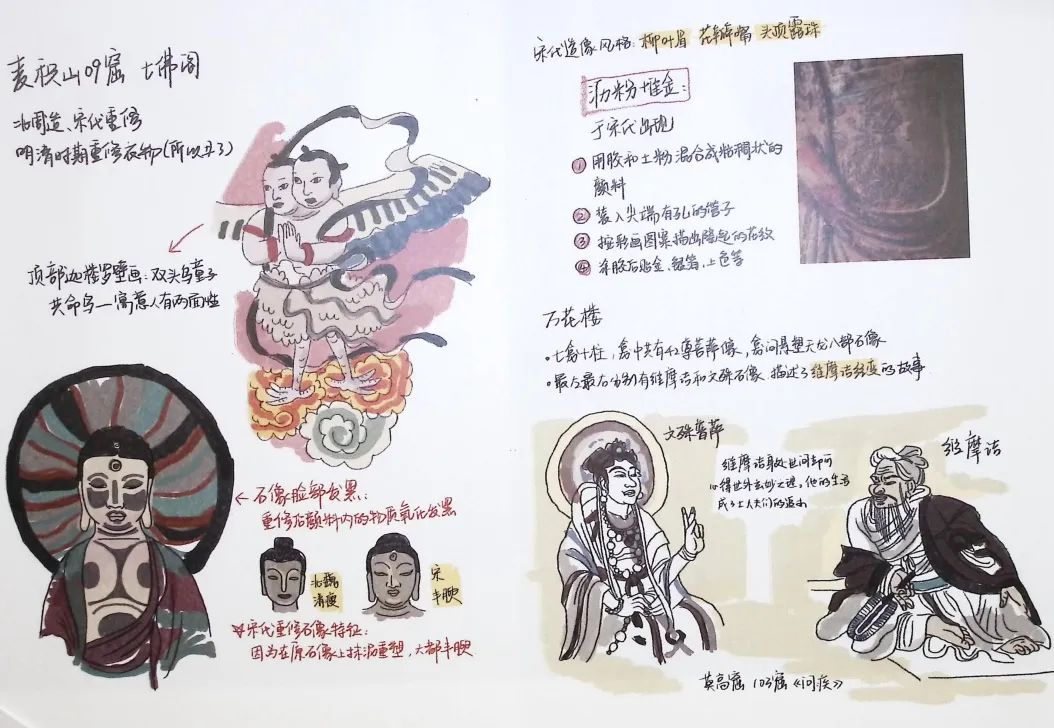 麦积山09窟 七佛阁
北周造、宋代重修
明清时期重修衣物(所以丑了)
顶部迦楼罗壁画：双头鸟童子
共命鸟——寓意人有两面性
← 石像脸部发黑：
重修后颜料内的物质氧化发黑
北魏
清瘦
宋
丰腴
宋代重修石像特征：
因为在原石像上抹泥重塑，大都丰腴
宋代造像风格：柳叶眉 花瓣嘴 头顶露珠
沥粉堆金：
于宋代出现
① 用胶和土粉混合成粉稠状的
颜料
② 装入尖端有孔的管子
③ 按彩画图案描出隆起的花纹
④ 涂胶后贴金、银箔，上色等
万花楼
• 七龛八柱，龛中共有42尊菩萨像，龛间是塑天龙八部石像
• 最左最右分别有维摩诘和文殊石像，描述了维摩诘经变的故事
文殊菩萨
维摩诘身处世间却可
心得世外玄妙之理，他的生活
成了士人夫们的追求
维摩诘
莫高窟 103窟《问疾》